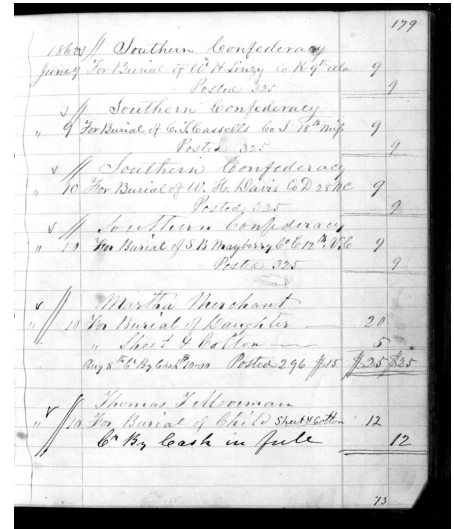 179
1862 Southern Confederacy
June 9 For Burial of Wm H Linzy Co K 9th Ala 9
Posted 325 9
Southern Confederacy
" 9 For Burial of C.S. Cassells Co I 18th Miss 9
Posted 325 9
Southern Confederacy
" 10 For Burial of W. H. Davis Co D 28 NC 9
Posted 325 9
Southern Confederacy
" 10 For Burial of S B Mayberry Co E 12th N.C 9
Posted 325 9
Martha Merchant
" 10 For Burial of Daughter — 20
" Sheet & Cotton — 5
Aug 8th Cr By Cash 10.00 Posted 296 $15 $25 $25
Thomas F Moorman
" 10 For Burial of Child Sheet & Cotton 12
Cr By Cash in full 12
73